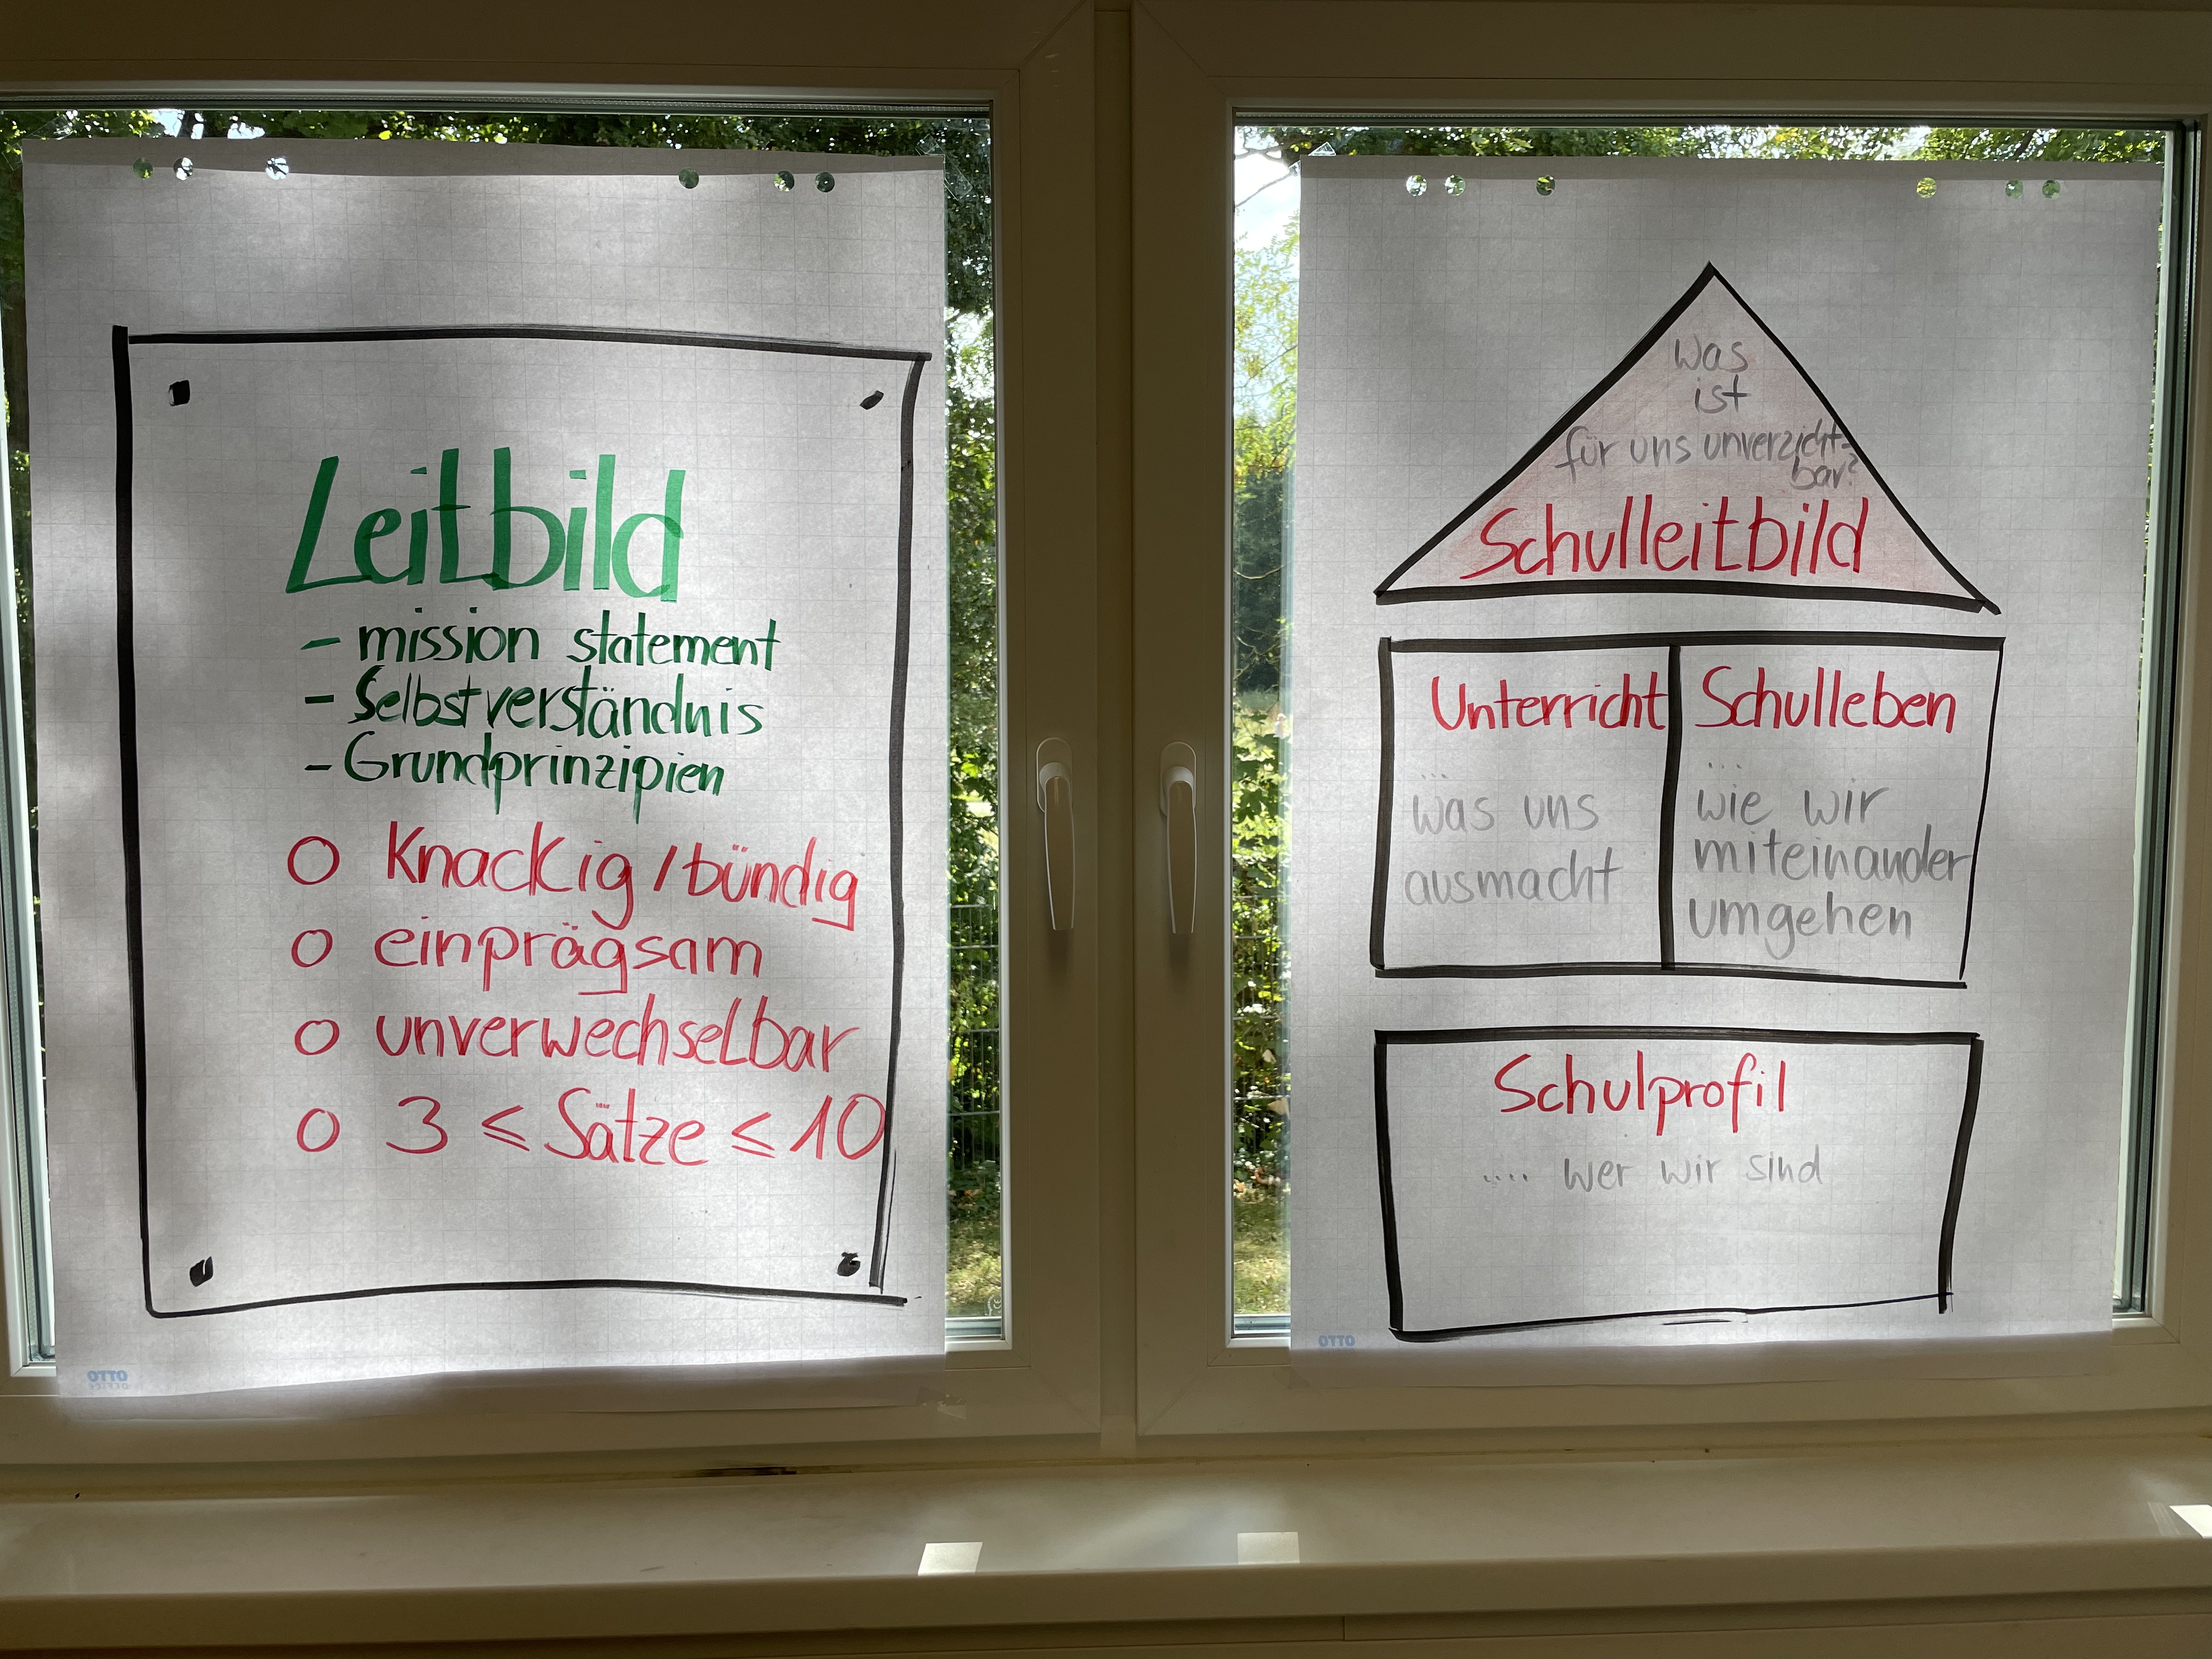 Leitbild
- mission statement
- Selbstverständnis
- Grundprinzipien
O Knackig / bündig
O einprägsam
O unverwechselbar
O 3 ≤ Sätze ≤ 10
OTTO
OFFICE
Was
ist
für uns unverzicht-
bar?
Schulleitbild
Unterricht
...
was uns
ausmacht
Schulleben
...
wie wir
miteinander
umgehen
Schulprofil
.... wer wir sind
OTTO